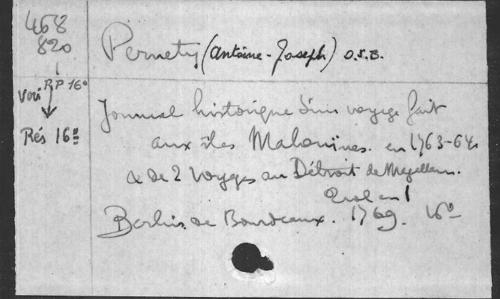 468
820
Pernety (Antoine-Joseph) O.S.B.
Voir RP 16°
Rés 16°
Journal historique d'un voyage fait
aux îles Malouines en 1763-64
& de 2 Voyages au Détroit de Magellan.
2 vol en 1
Berlin, de Bourdeaux. 1769. 16°